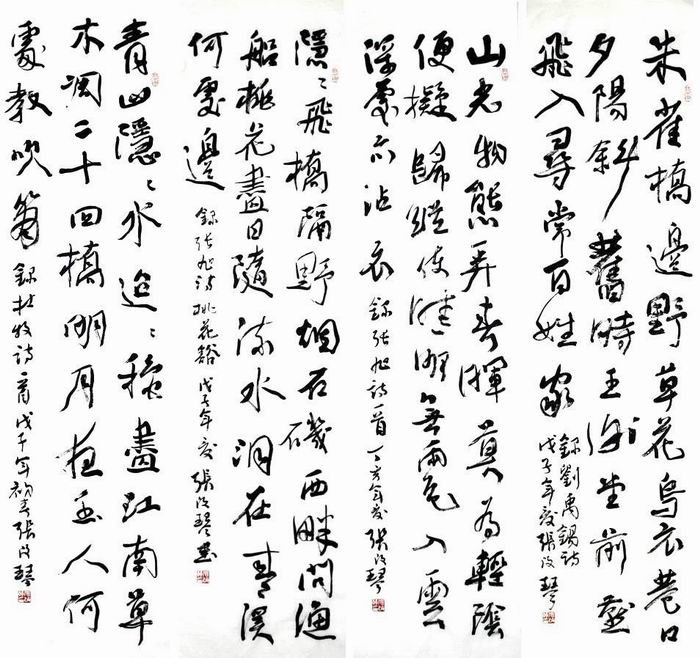 朱雀橋邊野草花烏衣巷口
夕陽斜舊時王謝堂前燕
飛入尋常百姓家
錄劉禹錫詩
戊子年夏張改琴
山光物態弄春暉莫為輕陰
便擬歸縱使晴明無雨色入雲
深處亦沾衣 錄張旭詩一首 丁亥年夏張改琴
隱〻飛橋隔野烟石磯西畔問漁
船桃花盡日隨流水洞在青溪
何處邊 錄張旭詩桃花谿戊子年夏張改琴書
青山隱〻水迢〻秋盡江南草
木凋二十四橋明月夜玉人何
處教吹簫 錄杜牧詩一首戊子年初春張改琴